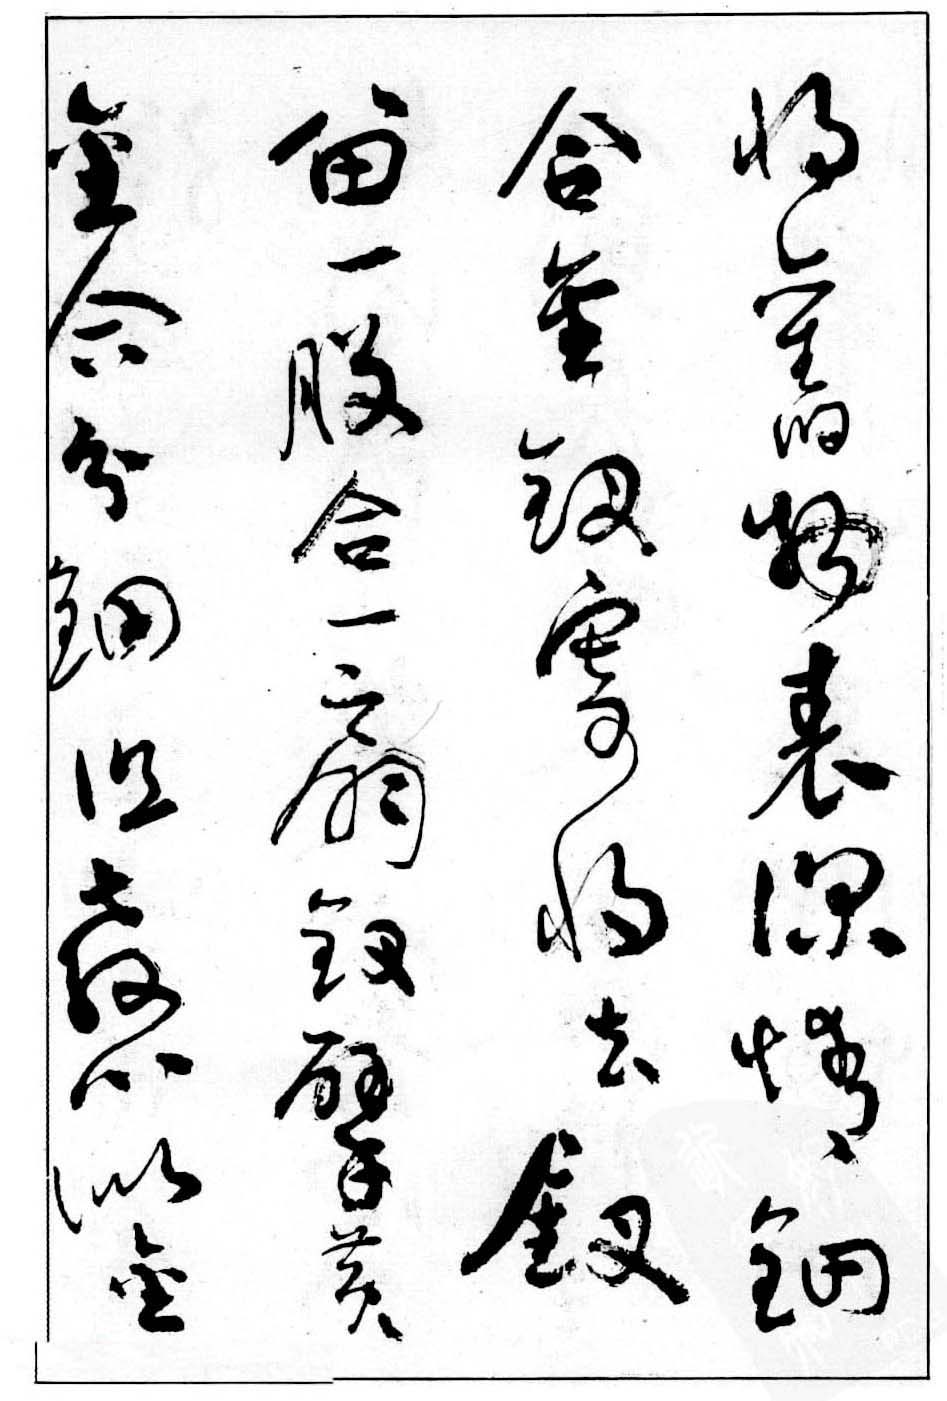 将舊物表深情鈿
合金釵寄将去釵
留一股合一扇釵擘黄
金合分鈿但教心似金